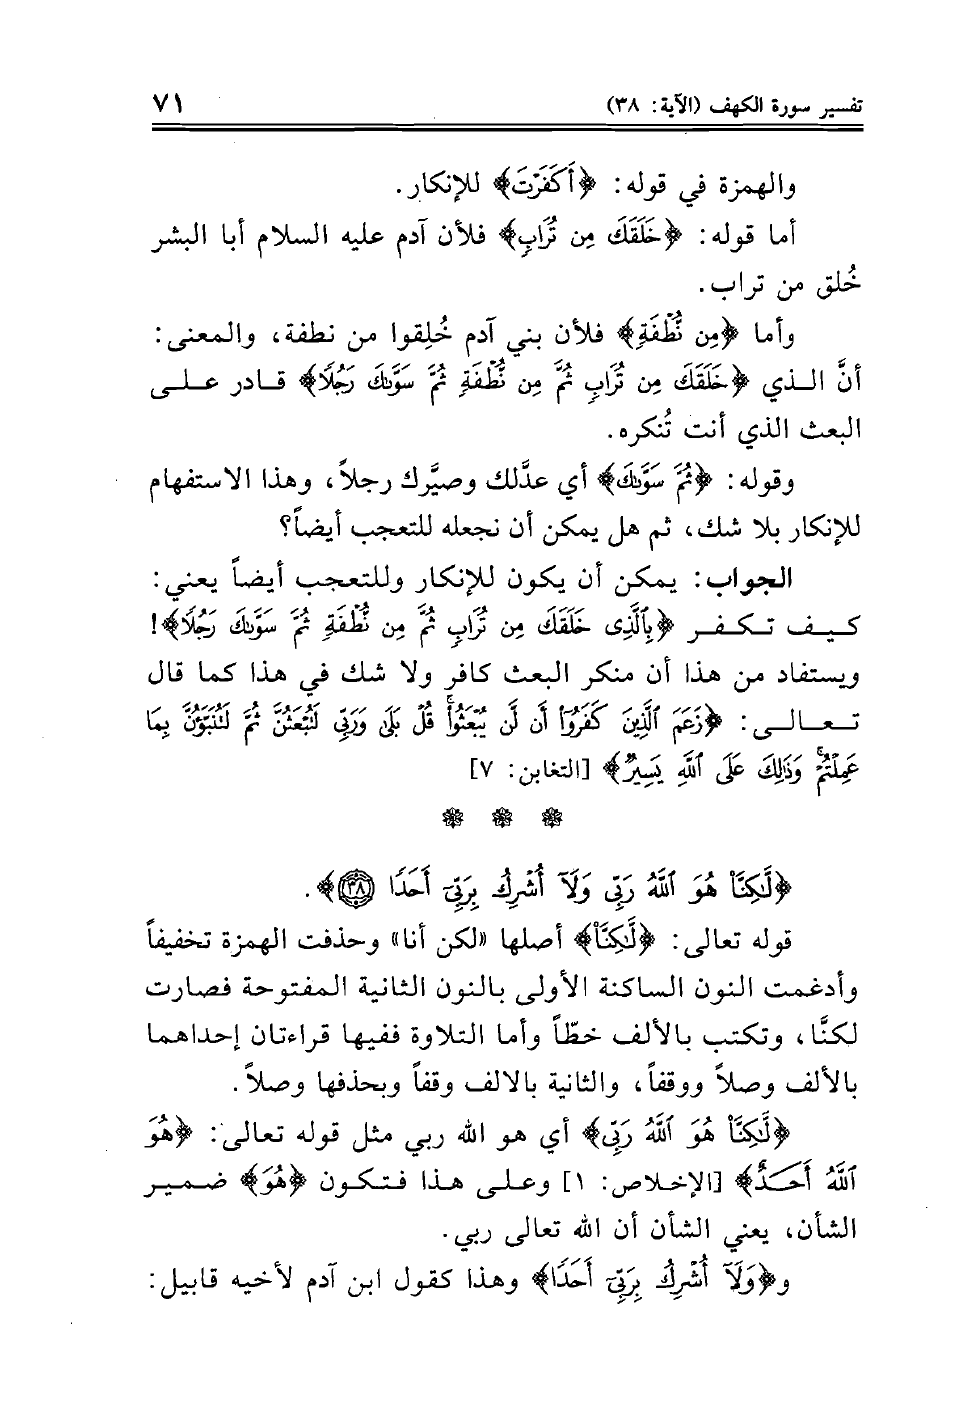 تفسير سورة الكهف (الآية: ٣٨)
٧١
والهمزة في قوله: ﴿أَكَفَرْتَ﴾ للإنكار.
أما قوله: ﴿خَلَقَكَ مِن تُرَابٍ﴾ فلأن آدم عليه السلام أبا البشر
خُلق من تراب.
وأما ﴿مِن نُّطْفَةٍ﴾ فلأن بني آدم خُلِقوا من نطفة، والمعنى:
أنَّ الذي ﴿خَلَقَكَ مِن تُرَابٍ ثُمَّ مِن نُّطْفَةٍ ثُمَّ سَوَّىٰكَ رَجُلًا﴾ قادر على
البعث الذي أنت تُنكره.
وقوله: ﴿ثُمَّ سَوَّىٰكَ﴾ أي عدَّلك وصيَّرك رجلاً، وهذا الاستفهام
للإنكار بلا شك، ثم هل يمكن أن نجعله للتعجب أيضاً؟
الجواب: يمكن أن يكون للإنكار وللتعجب أيضاً يعني:
كيف تكفر ﴿بِٱلَّذِى خَلَقَكَ مِن تُرَابٍ ثُمَّ مِن نُّطْفَةٍ ثُمَّ سَوَّىٰكَ رَجُلًا﴾!
ويستفاد من هذا أن منكر البعث كافر ولا شك في هذا كما قال
تعالى: ﴿زَعَمَ ٱلَّذِينَ كَفَرُوٓا۟ أَن لَّن يُبْعَثُوا۟ ۚ قُلْ بَلَىٰ وَرَبِّى لَتُبْعَثُنَّ ثُمَّ لَتُنَبَّؤُنَّ بِمَا
عَمِلْتُمْ ۚ وَذَٰلِكَ عَلَى ٱللَّهِ يَسِيرٌ﴾ [التغابن: ٧]
﴿لَّٰكِنَّا۠ هُوَ ٱللَّهُ رَبِّى وَلَآ أُشْرِكُ بِرَبِّىٓ أَحَدًا ٣٨﴾.
قوله تعالى: ﴿لَّٰكِنَّا۠﴾ أصلها «لكن أنا» وحذفت الهمزة تخفيفاً
وأدغمت النون الساكنة الأولى بالنون الثانية المفتوحة فصارت
لكنَّا، وتكتب بالألف خطّاً وأما التلاوة ففيها قراءتان إحداهما
بالألف وصلاً ووقفاً، والثانية بالالف وقفاً وبحذفها وصلاً.
﴿لَّٰكِنَّا۠ هُوَ ٱللَّهُ رَبِّى﴾ أي هو الله ربي مثل قوله تعالى: ﴿هُوَ
ٱللَّهُ أَحَدٌ﴾ [الإخلاص: ١] وعلى هذا فتكون ﴿هُوَ﴾ ضمير
الشأن، يعني الشأن أن الله تعالى ربي.
و﴿وَلَآ أُشْرِكُ بِرَبِّىٓ أَحَدًا﴾ وهذا كقول ابن آدم لأخيه قابيل: